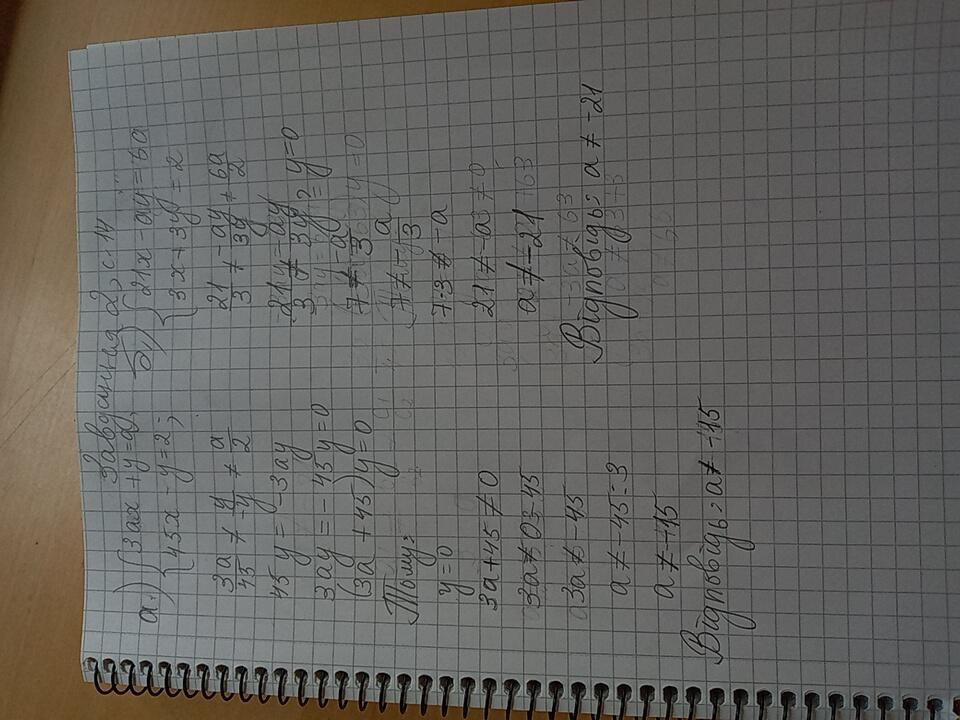 Завдання 2, с. 14
а.) { 3ax + y = a,
45x - y = 2;
3a/45 ≠ y/-y ≠ a/2
45y = -3ay
3ay = -45y = 0
(3a + 45)y = 0
Тому:
y = 0
3a + 45 ≠ 0
3a ≠ 0 - 45
3a ≠ -45
a ≠ -45 : 3
a ≠ -15
Відповідь: a ≠ -15
б.) { 21x - ay = 6a
3x + 3y = 2
21/3 ≠ -ay/3y ≠ 6a/2
21y/3 ≠ -ay/3y = y = 0
7 ≠ -a/3
7 ≠ -a/3
7·3 ≠ -a
21 ≠ -a ≠ 0
a ≠ -21
Відповідь: a ≠ -21